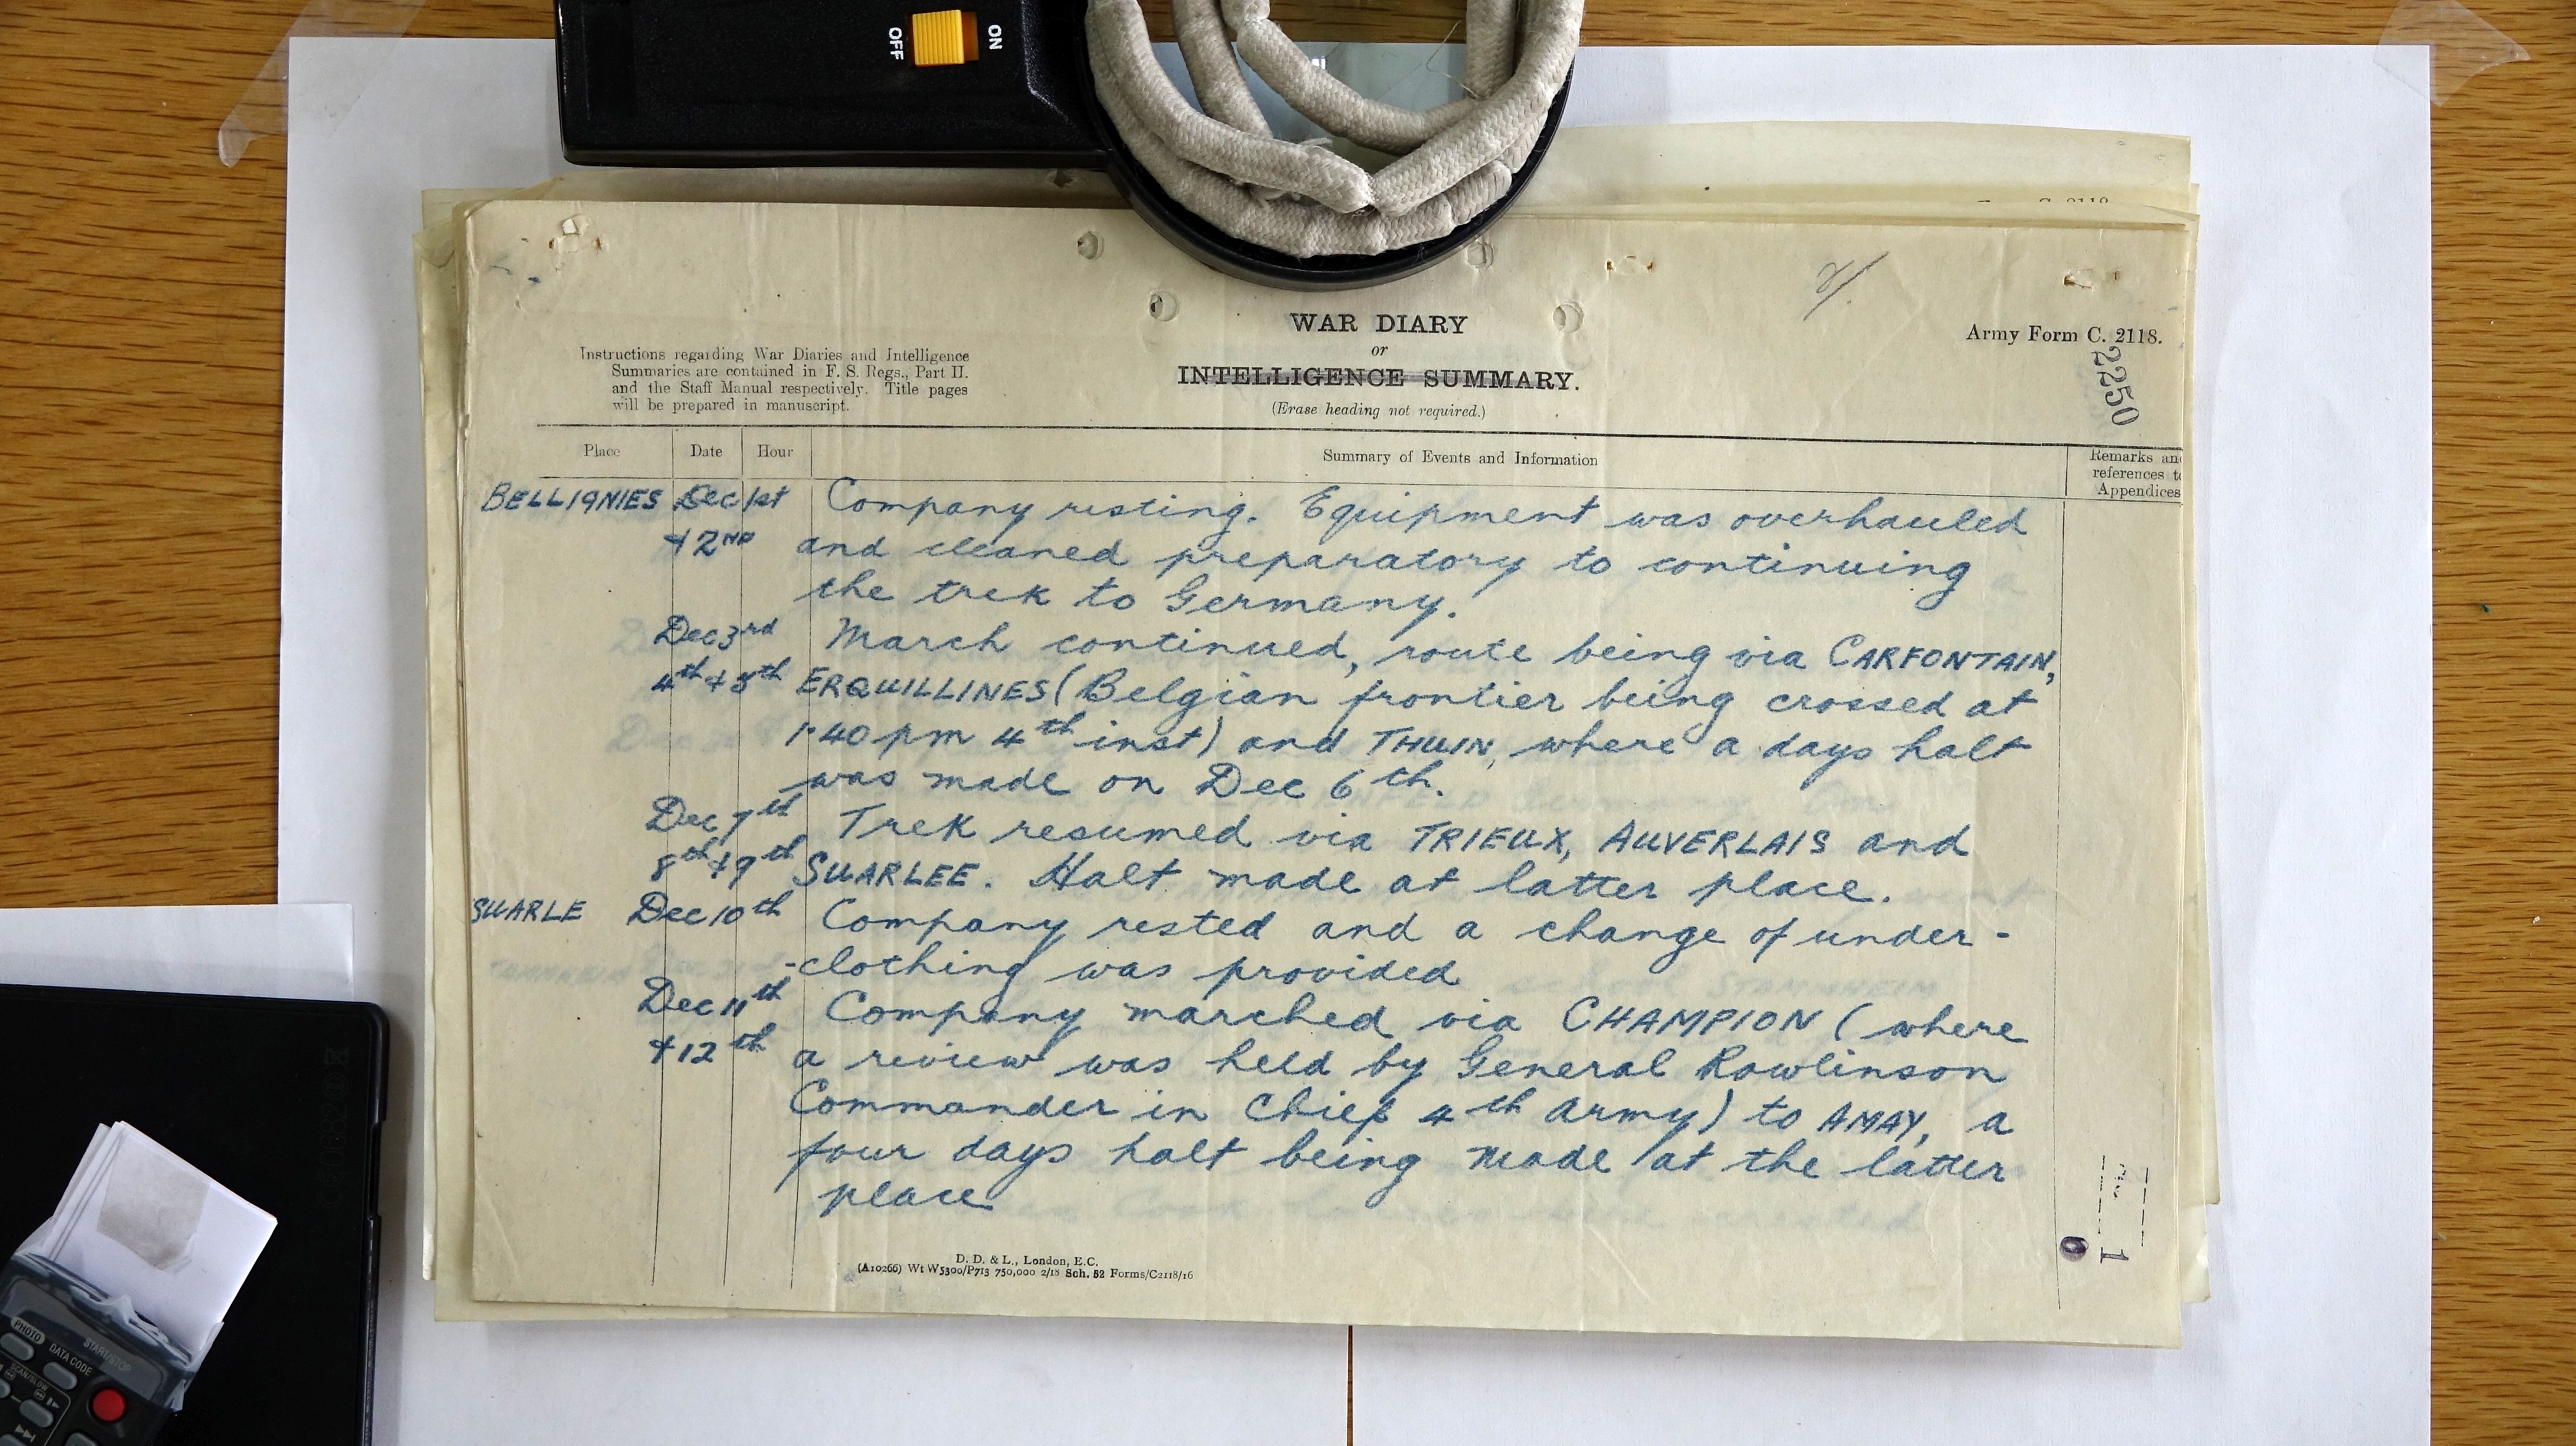 OFF ON
Army Form C. 2118.
22250
WAR DIARY
or
INTELLIGENCE SUMMARY.
(Erase heading not required.)
Instructions regarding War Diaries and Intelligence
Summaries are contained in F. S. Regs., Part II.
and the Staff Manual respectively. Title pages
will be prepared in manuscript.
Place Date Hour Summary of Events and Information Remarks and
references to
Appendices
BELLIGNIES Dec 1st Company resting. Equipment was overhauled
+ 2ND and cleaned preparatory to continuing
the trek to Germany.
Dec 3rd March continued, route being via CARFONTAIN,
4th + 5th ERQUILLINES (Belgian frontier being crossed at
1.40 pm 4th inst) and THUIN, where a days halt
was made on Dec 6th.
Dec 7th Trek resumed via TRIEUX, AUVERLAIS and
8th + 9th SUARLEE. Halt made at latter place.
SUARLE Dec 10th Company rested and a change of under-
-clothing was provided
Dec 11th Company marched via CHAMPION (where
+ 12th a review was held by General Rawlinson
Commander in Chief 4th Army) to AMAY, a
four days halt being made at the latter
place
D. D. & L., London, E.C.
(A10266) Wt W5300/P713 750,000 2/18 Sch. 52 Forms/C2118/16
PHOTO
DATA CODE
START/STOP
SCAN/SLOW